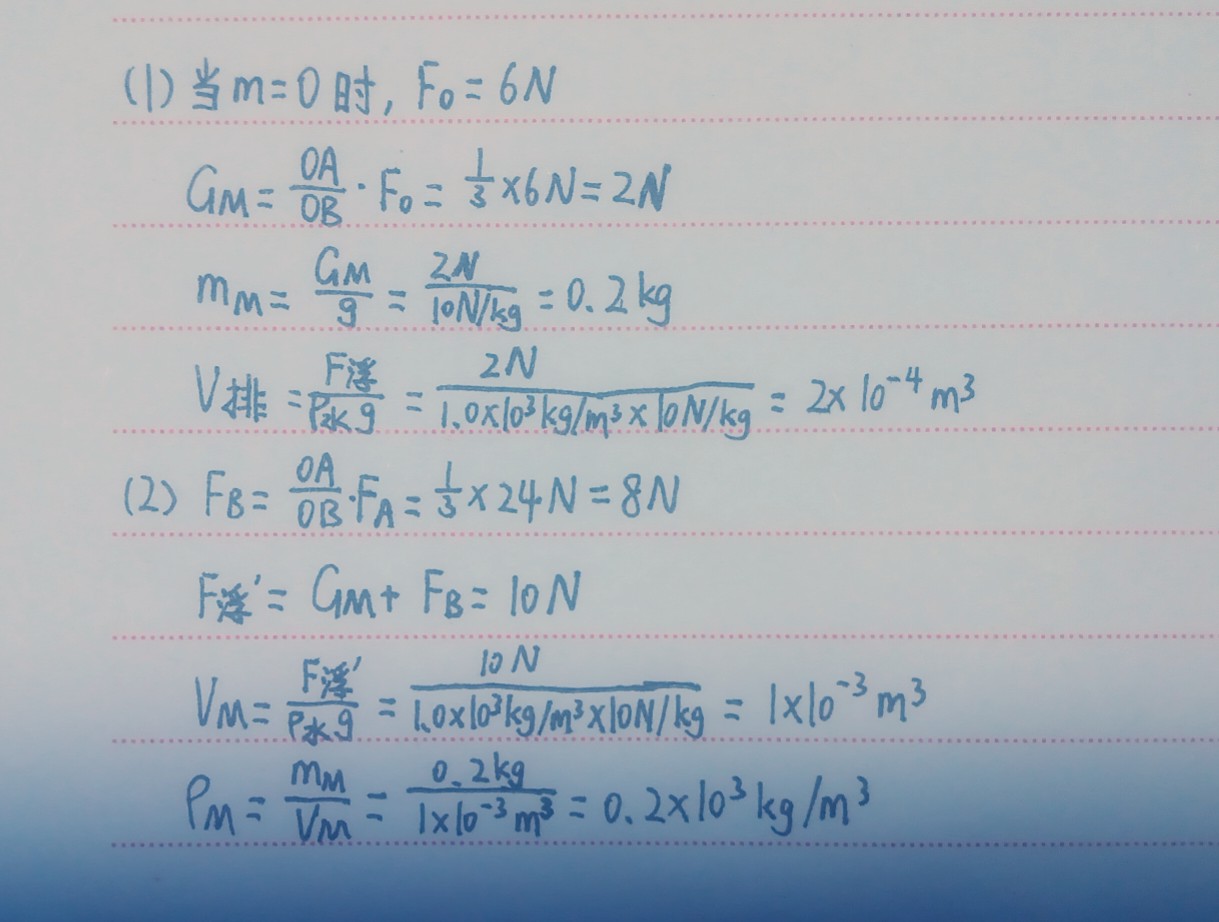 (1) 当 m=0 时, F₀=6N
G_M = OA/OB · F₀ = 1/3 ×6N=2N
m_M = G_M/g = 2N/10N/kg = 0.2kg
V排 = F浮/ρ水g = 2N/1.0×10³kg/m³×10N/kg = 2×10⁻⁴m³
(2) F_B = OA/OB · F_A = 1/3 ×24N=8N
F浮′ = G_M + F_B = 10N
V_M = F浮′/ρ水g = 10N/1.0×10³kg/m³×10N/kg = 1×10⁻³m³
ρ_M = m_M/V_M = 0.2kg/1×10⁻³m³ = 0.2×10³kg/m³